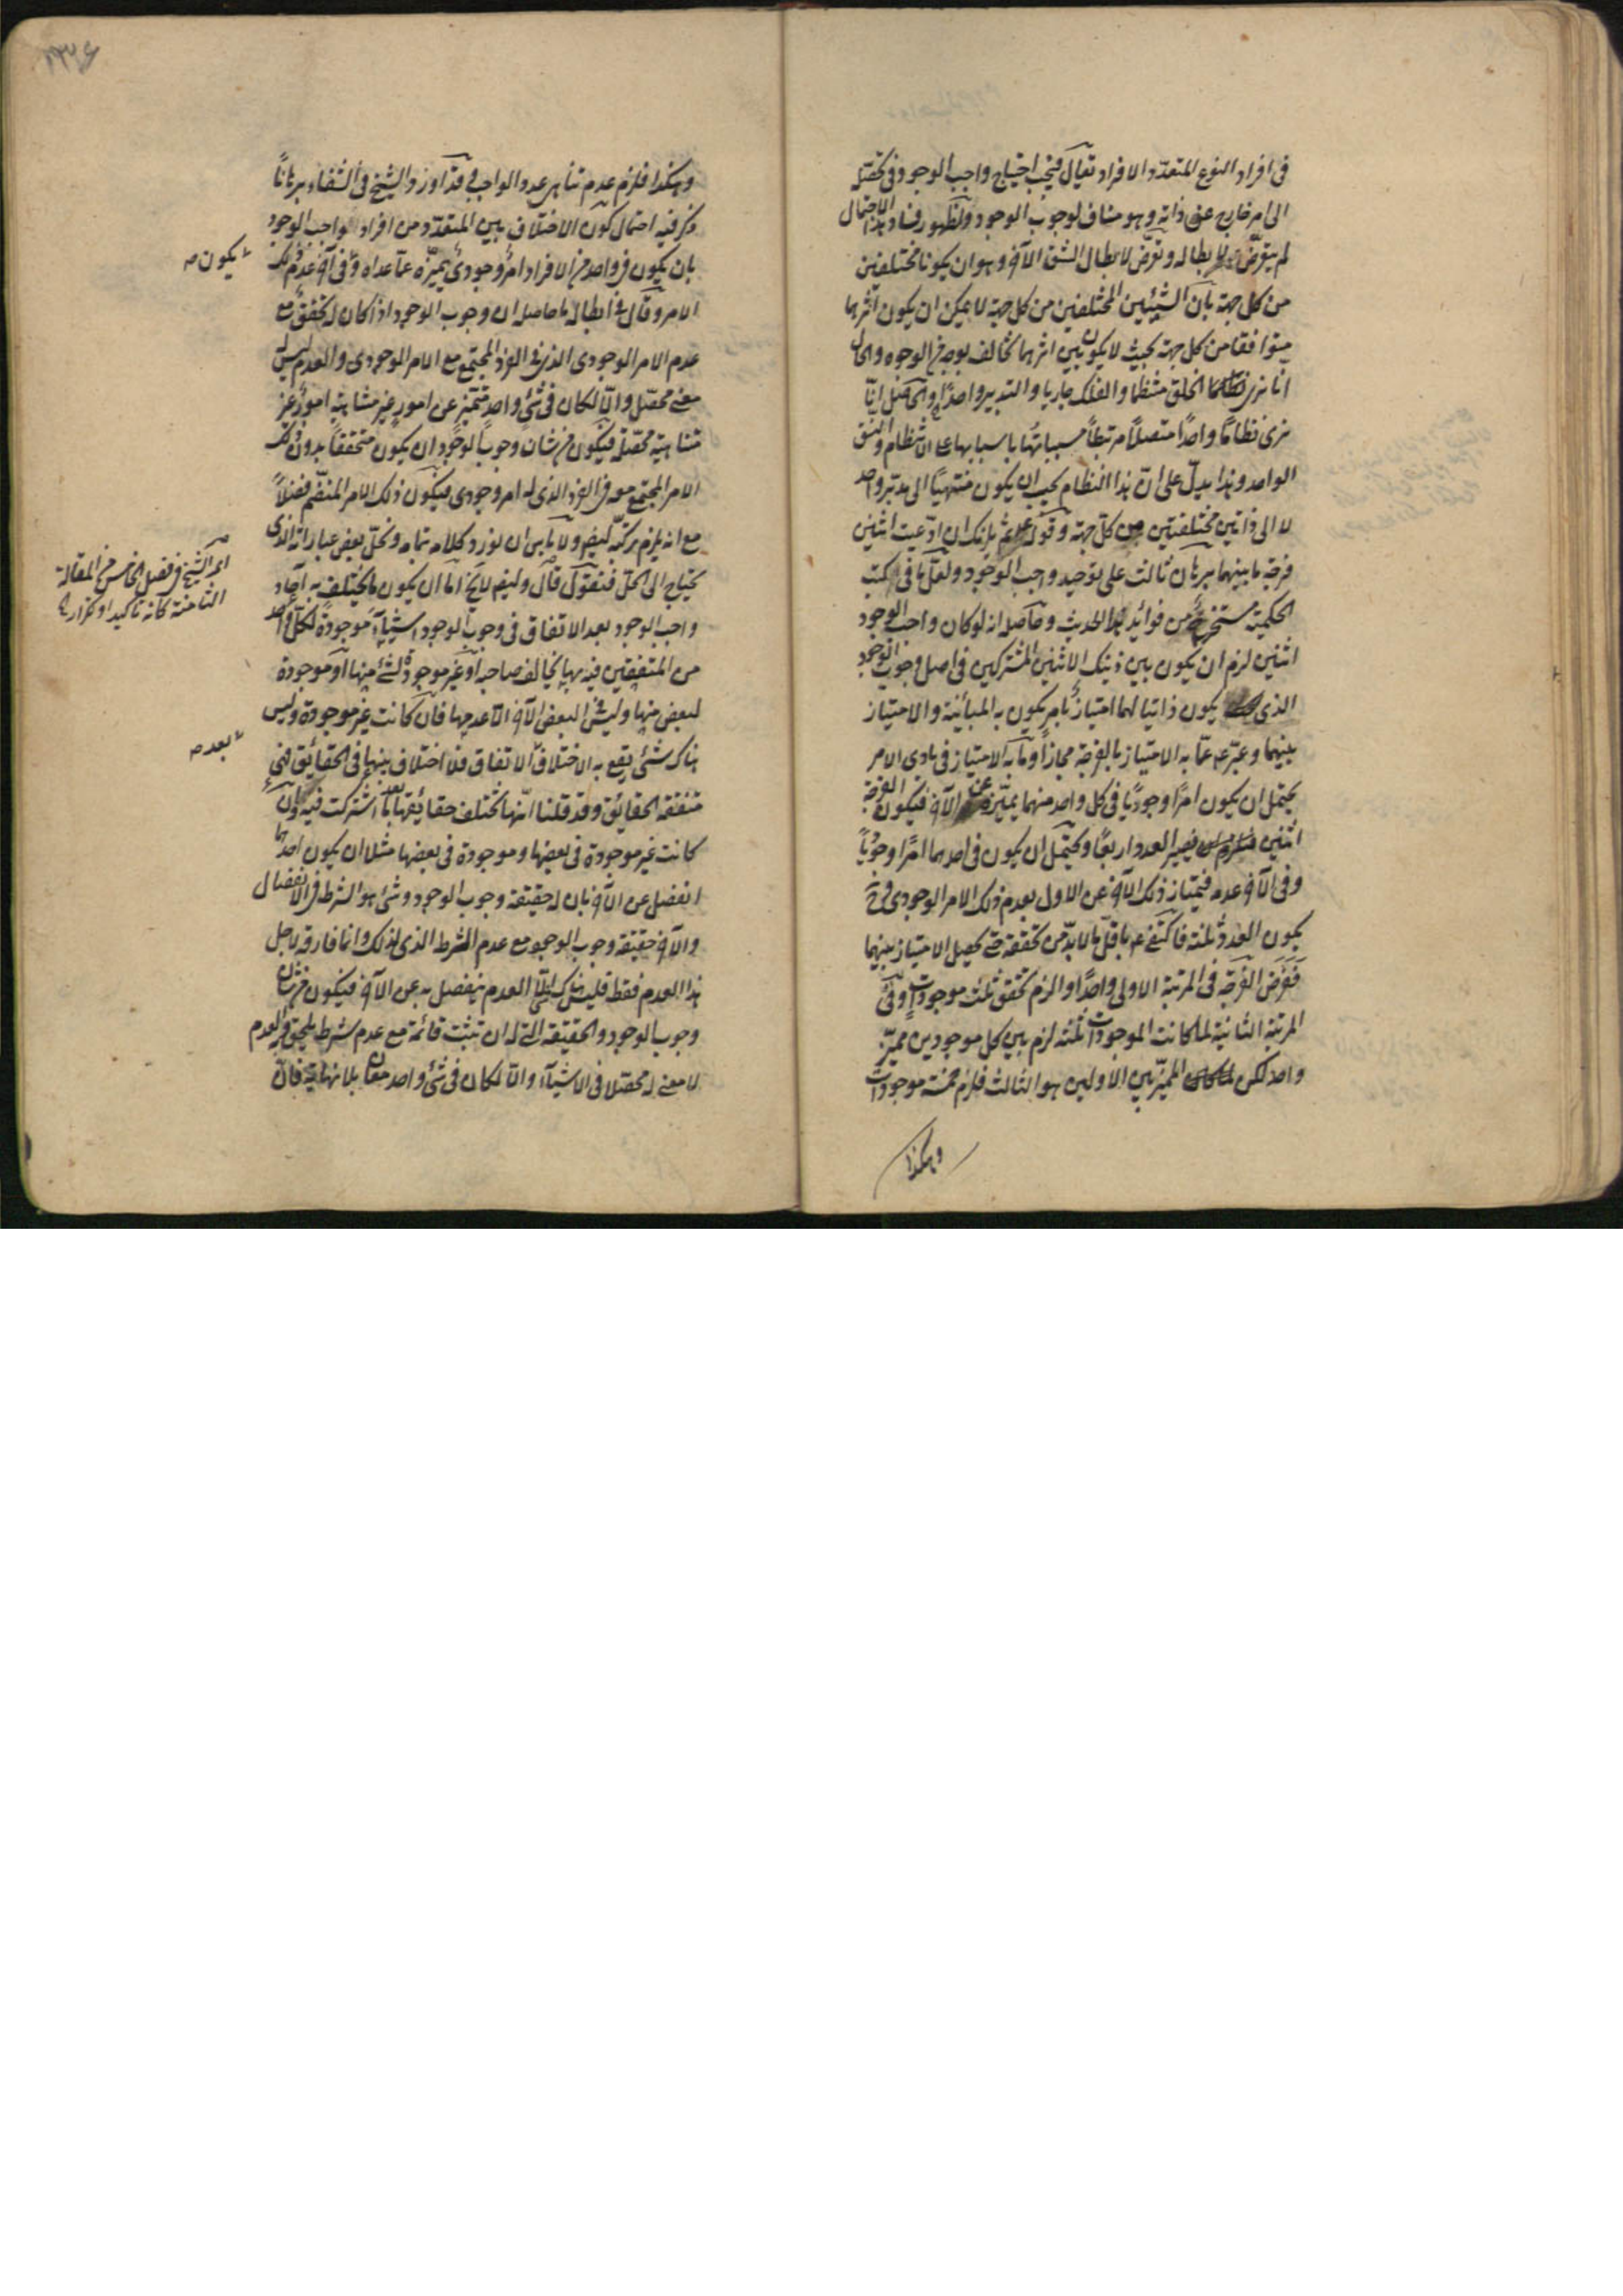 فى افراد النوع المتعدد الافراد تعالى فيجب احتياج واجب الوجود فى تحققه
الى امر خارج عن ذاته وهو مناف لوجوب الوجود ولظهور فساد هذا الاحتمال
لم يتعرض لابطاله وتعرض لابطال الشق الآخر وهو ان يكونا مختلفين
من كل جهة بان الشيئين المختلفين من كل جهة لا يمكن ان يكون اثرهما
متوافقا من كل جهة بحيث لا يكون بين اثرهما تخالف بوجه من الوجوه والحال
انا نرى الخلق منتظما والفلك جاريا والتدبير واحدًا والحاصل انّا
نرى نظامًا واحدًا متصلًا مرتبطًا مسبباتها باسبابها على الانتظام والنسق
الواحد وهذا يدلّ على انّ هذا النظام يجب ان يكون منتهيًا الى مدبّر واحد
لا الى ذاتين مختلفتين من كلّ جهة وقوله ثم يلزمك ان ادّعيت اثنين
فرجة ما بينهما برهان ثالث على توحيد واجب الوجود ولعلّ ما فى الكتب
الحكمية مستخرج من فوائد هذا الحديث وحاصله انه لو كان واجب الوجود
اثنين لزم ان يكون بين ذينك الاثنين المشتركين فى اصل وجوب الوجود
الذى يكون ذاتيا لهما امتياز بامر يكون به المباينة والامتياز
بينهما وعبّر عمّا به الامتياز بالفرجة مجازًا وما به الامتياز فى بادى الامر
يحتمل ان يكون امرًا وجوديًا فى كل واحد منهما يميّزه عن الآخر فيكون الفرجة
اثنين فيصير العدد اربعًا ويحتمل ان يكون فى احدهما امرًا وجوديًا
وفى الآخر عدمه فيمتاز ذلك الآخر عن الاول بعدم ذلك الامر الوجودى فح
يكون العدد ثلثة فاكتفى باقلّ ما لا بدّ من تحققه حتى يحصل الامتياز بينهما
ففرض الفرجة فى المرتبة الاولى واحدًا والزم تحقق ثلث موجودات وفى
المرتبة الثانية لما كانت الموجودات ثلثة لزم بين كل موجودين مميّز
واحد لكن المميّز بين الاولين هو الثالث فلزم خمسة موجودات
وهكذا
وهكذا فلزم عدم تناهى عدد الواجب وقد اورد الشيخ فى الشفاء برهانًا
ذكر فيه احتمال كون الاختلاف بين المتعدد من افراد واجب الوجود
بان يكون فى واحد من الافراد امر وجودى يميّزه عمّا عداه وفى آخر عدم ذلك
الامر وقال فى ابطاله ما حاصله ان وجوب الوجود اذا كان له تحقق مع
عدم الامر الوجودى الذى فى الفرد المجتمع مع الامر الوجودى والعدم ليس له
معنى محصّل والّا لكان فى شئ واحد متميّز عن امور غير متناهية امور غير
متناهية محصّلة فيكون من شان وجوب الوجود ان يكون متحققًا بدون ذلك
الامر المجتمع معه فى الفرد الذى له امر وجودى فيكون ذلك الامر المنضمّ فضلًا
مع انه يلزم تركّبه ايضا ولا باس ان نورد كلامه بتمامه ونحلّ بعض عباراته الذى
يحتاج الى الحلّ فنقول قال وايضا لا يخ اما ان يكون ما يختلف به آحاد
واجب الوجود بعد الاتفاق فى وجوب الوجود اشياء موجودة لكلّ واحد
من المتفقين فيه بها يخالف صاحبه او غير موجودة لشئ منها او موجودة
لبعض منها وليس فى البعض الآخر الّا عدمها فان كانت غير موجودة وليس
هناك شئ يقع به الاختلاف الاتفاق فلا اختلاف بينها فى الحقائق فهى
متفقة الحقائق وقد قلنا انّها تختلف حقائقها بعد ما اشتركت فيه وان
كانت غير موجودة فى بعضها وموجودة فى بعضها مثلا ان يكون احدهما
انفصل عن الآخر بان له حقيقة وجوب الوجود وشئ هو الشرط فى الانفصال
والآخر حقيقة وجوب الوجود مع عدم الشرط الذى لذلك وانما فارقه لاجل
هذا العدم فقط فليس هناك شئ الّا العدم ينفصل به عن الآخر فيكون من شان
وجوب الوجود والحقيقة التى له ان تثبت قائمة مع عدم شرط يلحق والعدم
لا معنى له محصّلا فى الاشياء والّا لكان فى شئ واحد معان بلا نهاية فانّ
يكون
اى الشيخ فى فصل الخامس من المقالة
الثامنة كانه تأكيد او تكرار
بعد